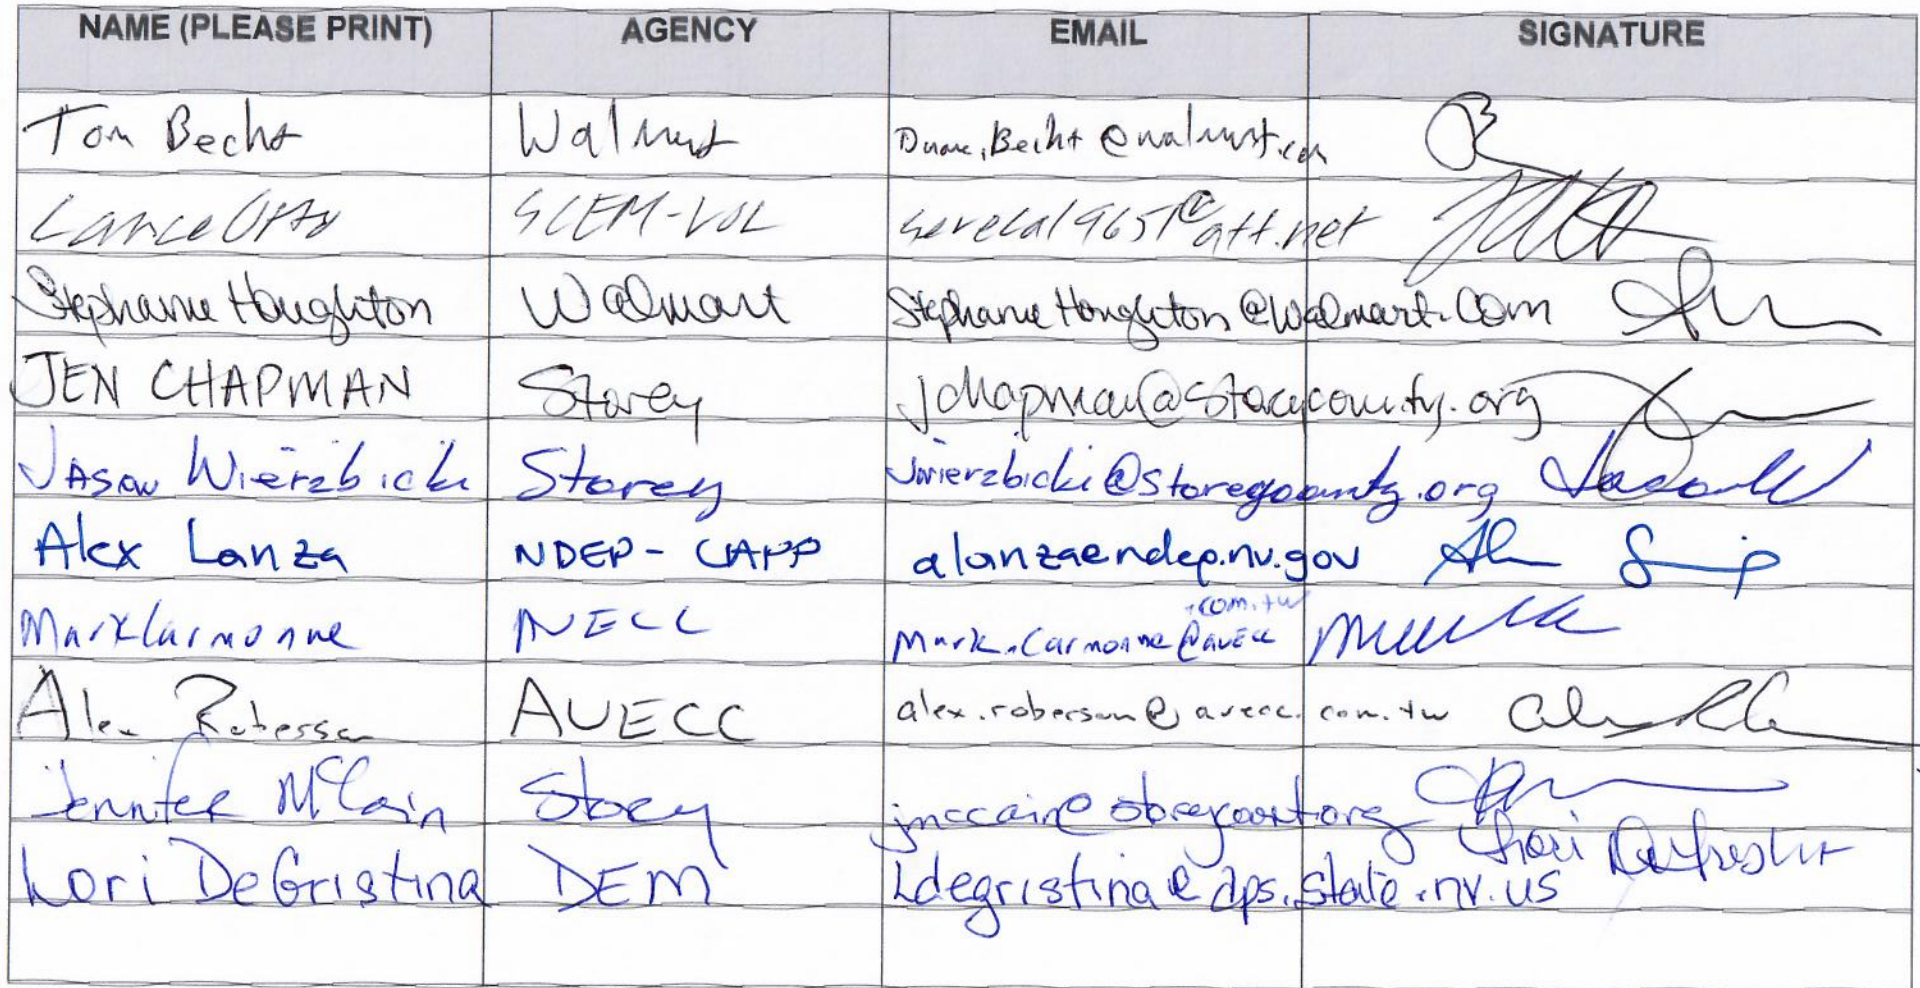 NAME (PLEASE PRINT) AGENCY EMAIL SIGNATURE
Tom Becht Walmart Duane.Becht@walmart.com
Lance Otto SCEM-VOL serecal9651@att.net
Stephanie Houghton Walmart Stephanie Houghton@Walmart.Com
JEN CHAPMAN Storey jchapman@storeycounty.org
JASON Wierzbicki Storey Jwierzbicki@storeycounty.org
Alex Lanza NDEP- CAPP alanza@ndep.nv.gov
Mark Carmonne AVECC Mark.Carmonne@avecc.com.tw
Alex Roberson AVECC alex.roberson@avecc.com.tw
Jennifer McCain Storey jmccain@storeycounty.org
Lori DeGristina DEM Ldegristina@dps.state.nv.us